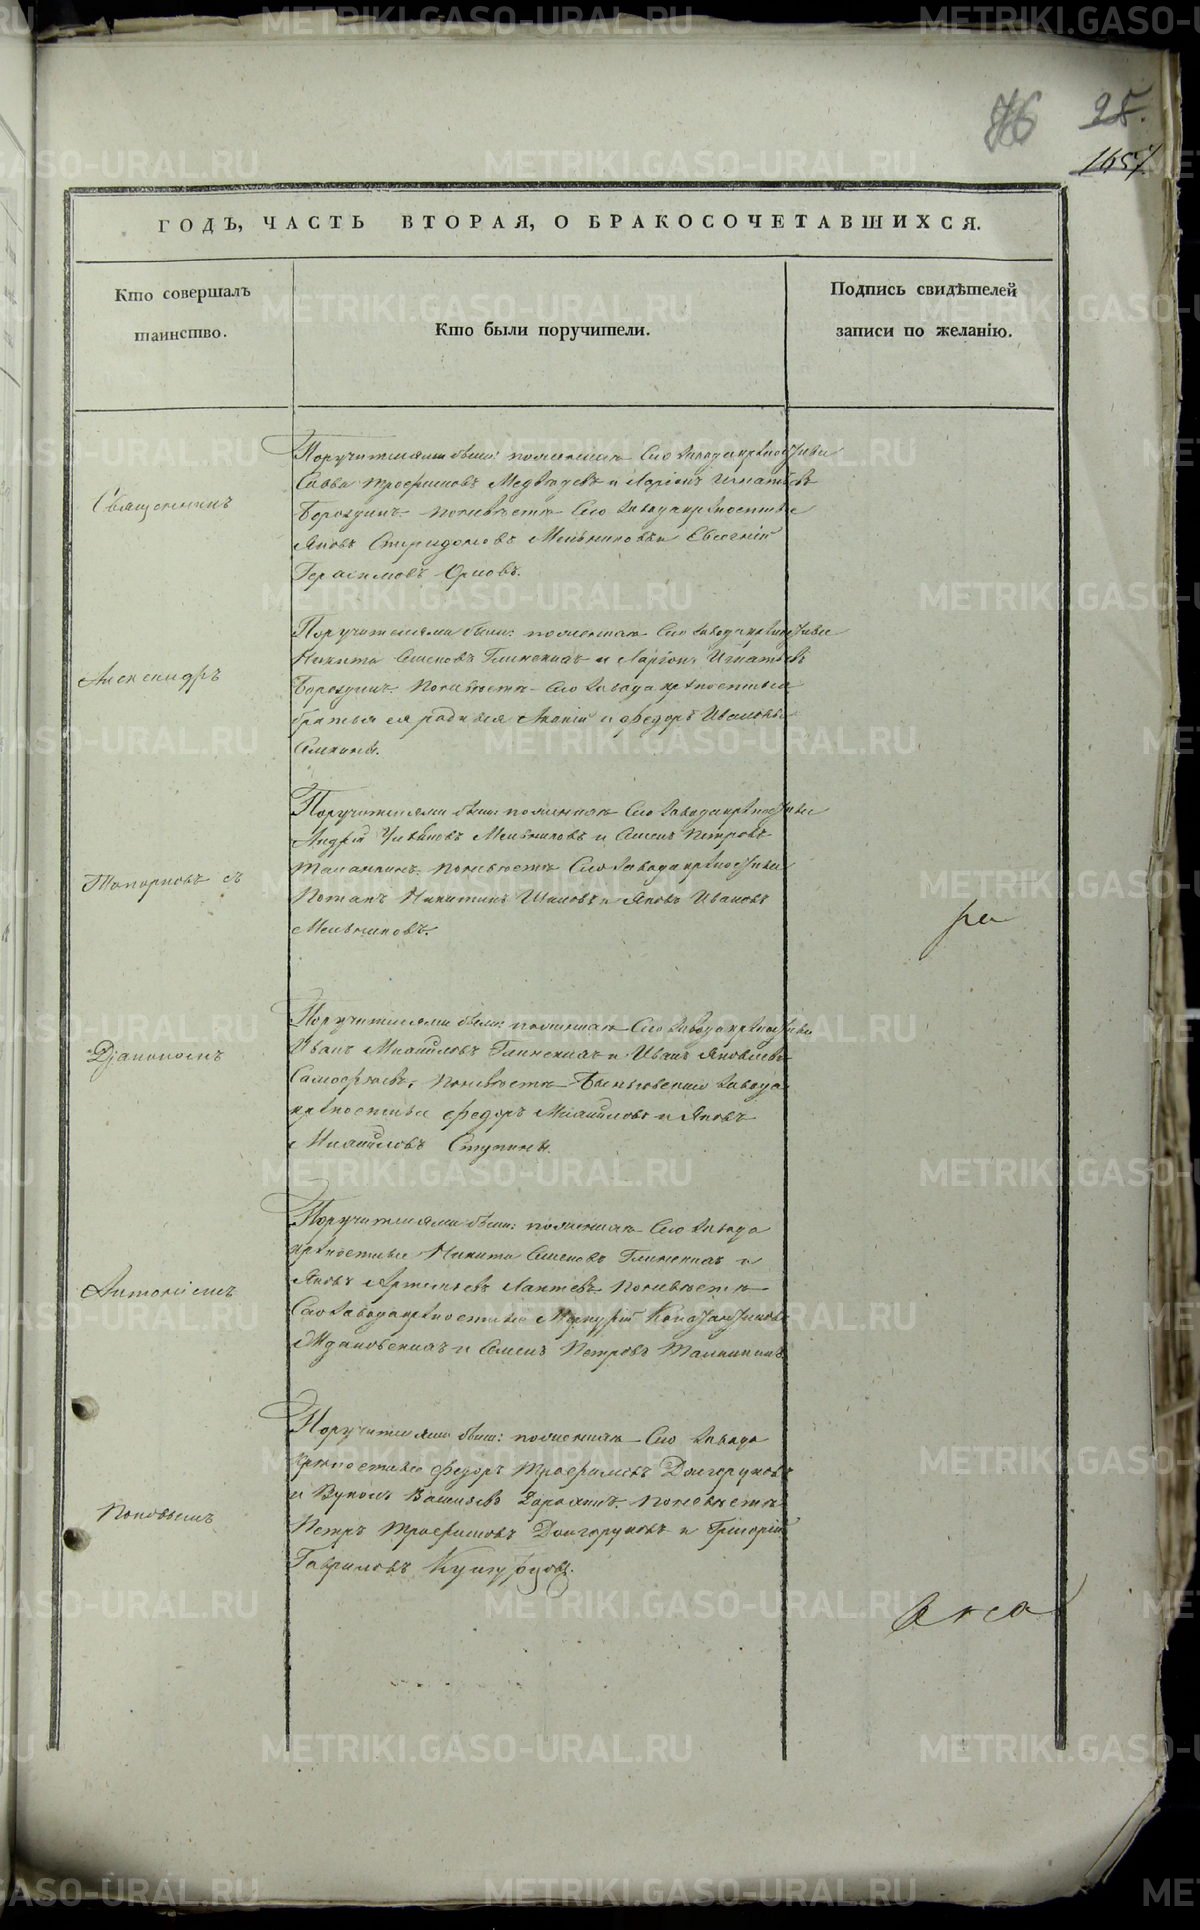 76
25.
1657
ГОДЪ, ЧАСТЬ ВТОРАЯ, О БРАКОСОЧЕТАВШИХСЯ.
Кто совершалъ
таинство.
Кто были поручители.
Подпись свидѣтелей
записи по желанію.
Священникъ
Александръ
Топорковъ съ
Діакономъ
Антоніемъ
Поповымъ
Поручителями были: по женихѣ Сего завода крѣпостные
Савва Трофимовъ Медвѣдевъ и Ларіонъ Игнатьевъ
Бороздинъ. По невѣстѣ Сего завода крѣпостные
Яковъ Спиридоновъ Мельниковъ и Евгеній
Герасимовъ Орловъ.
Поручителями были: по женихѣ Сего завода крѣпостные
Никита Семеновъ Глинскихъ и Ларіонъ Игнатьевъ
Бороздинъ. По невѣстѣ Сего завода крѣпостные
братья ея родные и Федоръ Ивановы
Поручителями были: по женихѣ Сего завода крѣпостные
Андрей Мельниковъ и Семенъ Петровъ
По невѣстѣ Сего завода крѣпостные
Потапъ Никитинъ и Яковъ Ивановъ
Мельниковъ.
Поручителями были: по женихѣ Сего завода крѣпостные
Иванъ Михайловъ Глинскихъ и Иванъ Яковлевъ
по невѣстѣ Быньговскаго завода
крѣпостные Федоръ Михайловъ и Яковъ
Михайловъ Ступины.
Поручителями были: по женихѣ Сего завода
крѣпостные Никита Семеновъ Глинскихъ и
Яковъ Артемьевъ Лаптевъ. По невѣстѣ
Сего завода крѣпостные Меркурій Константиновъ
Ждановскихъ и Семенъ Петровъ
Поручителями были: по женихѣ Сего завода
крѣпостные Федоръ Трофимовъ Долгоруковъ
и Вуколъ По невѣстѣ
Петръ Трофимовъ Долгоруковъ и Григорій
Гавриловъ Кунгурцовъ.
ра
METRIKI.GASO-URAL.RU